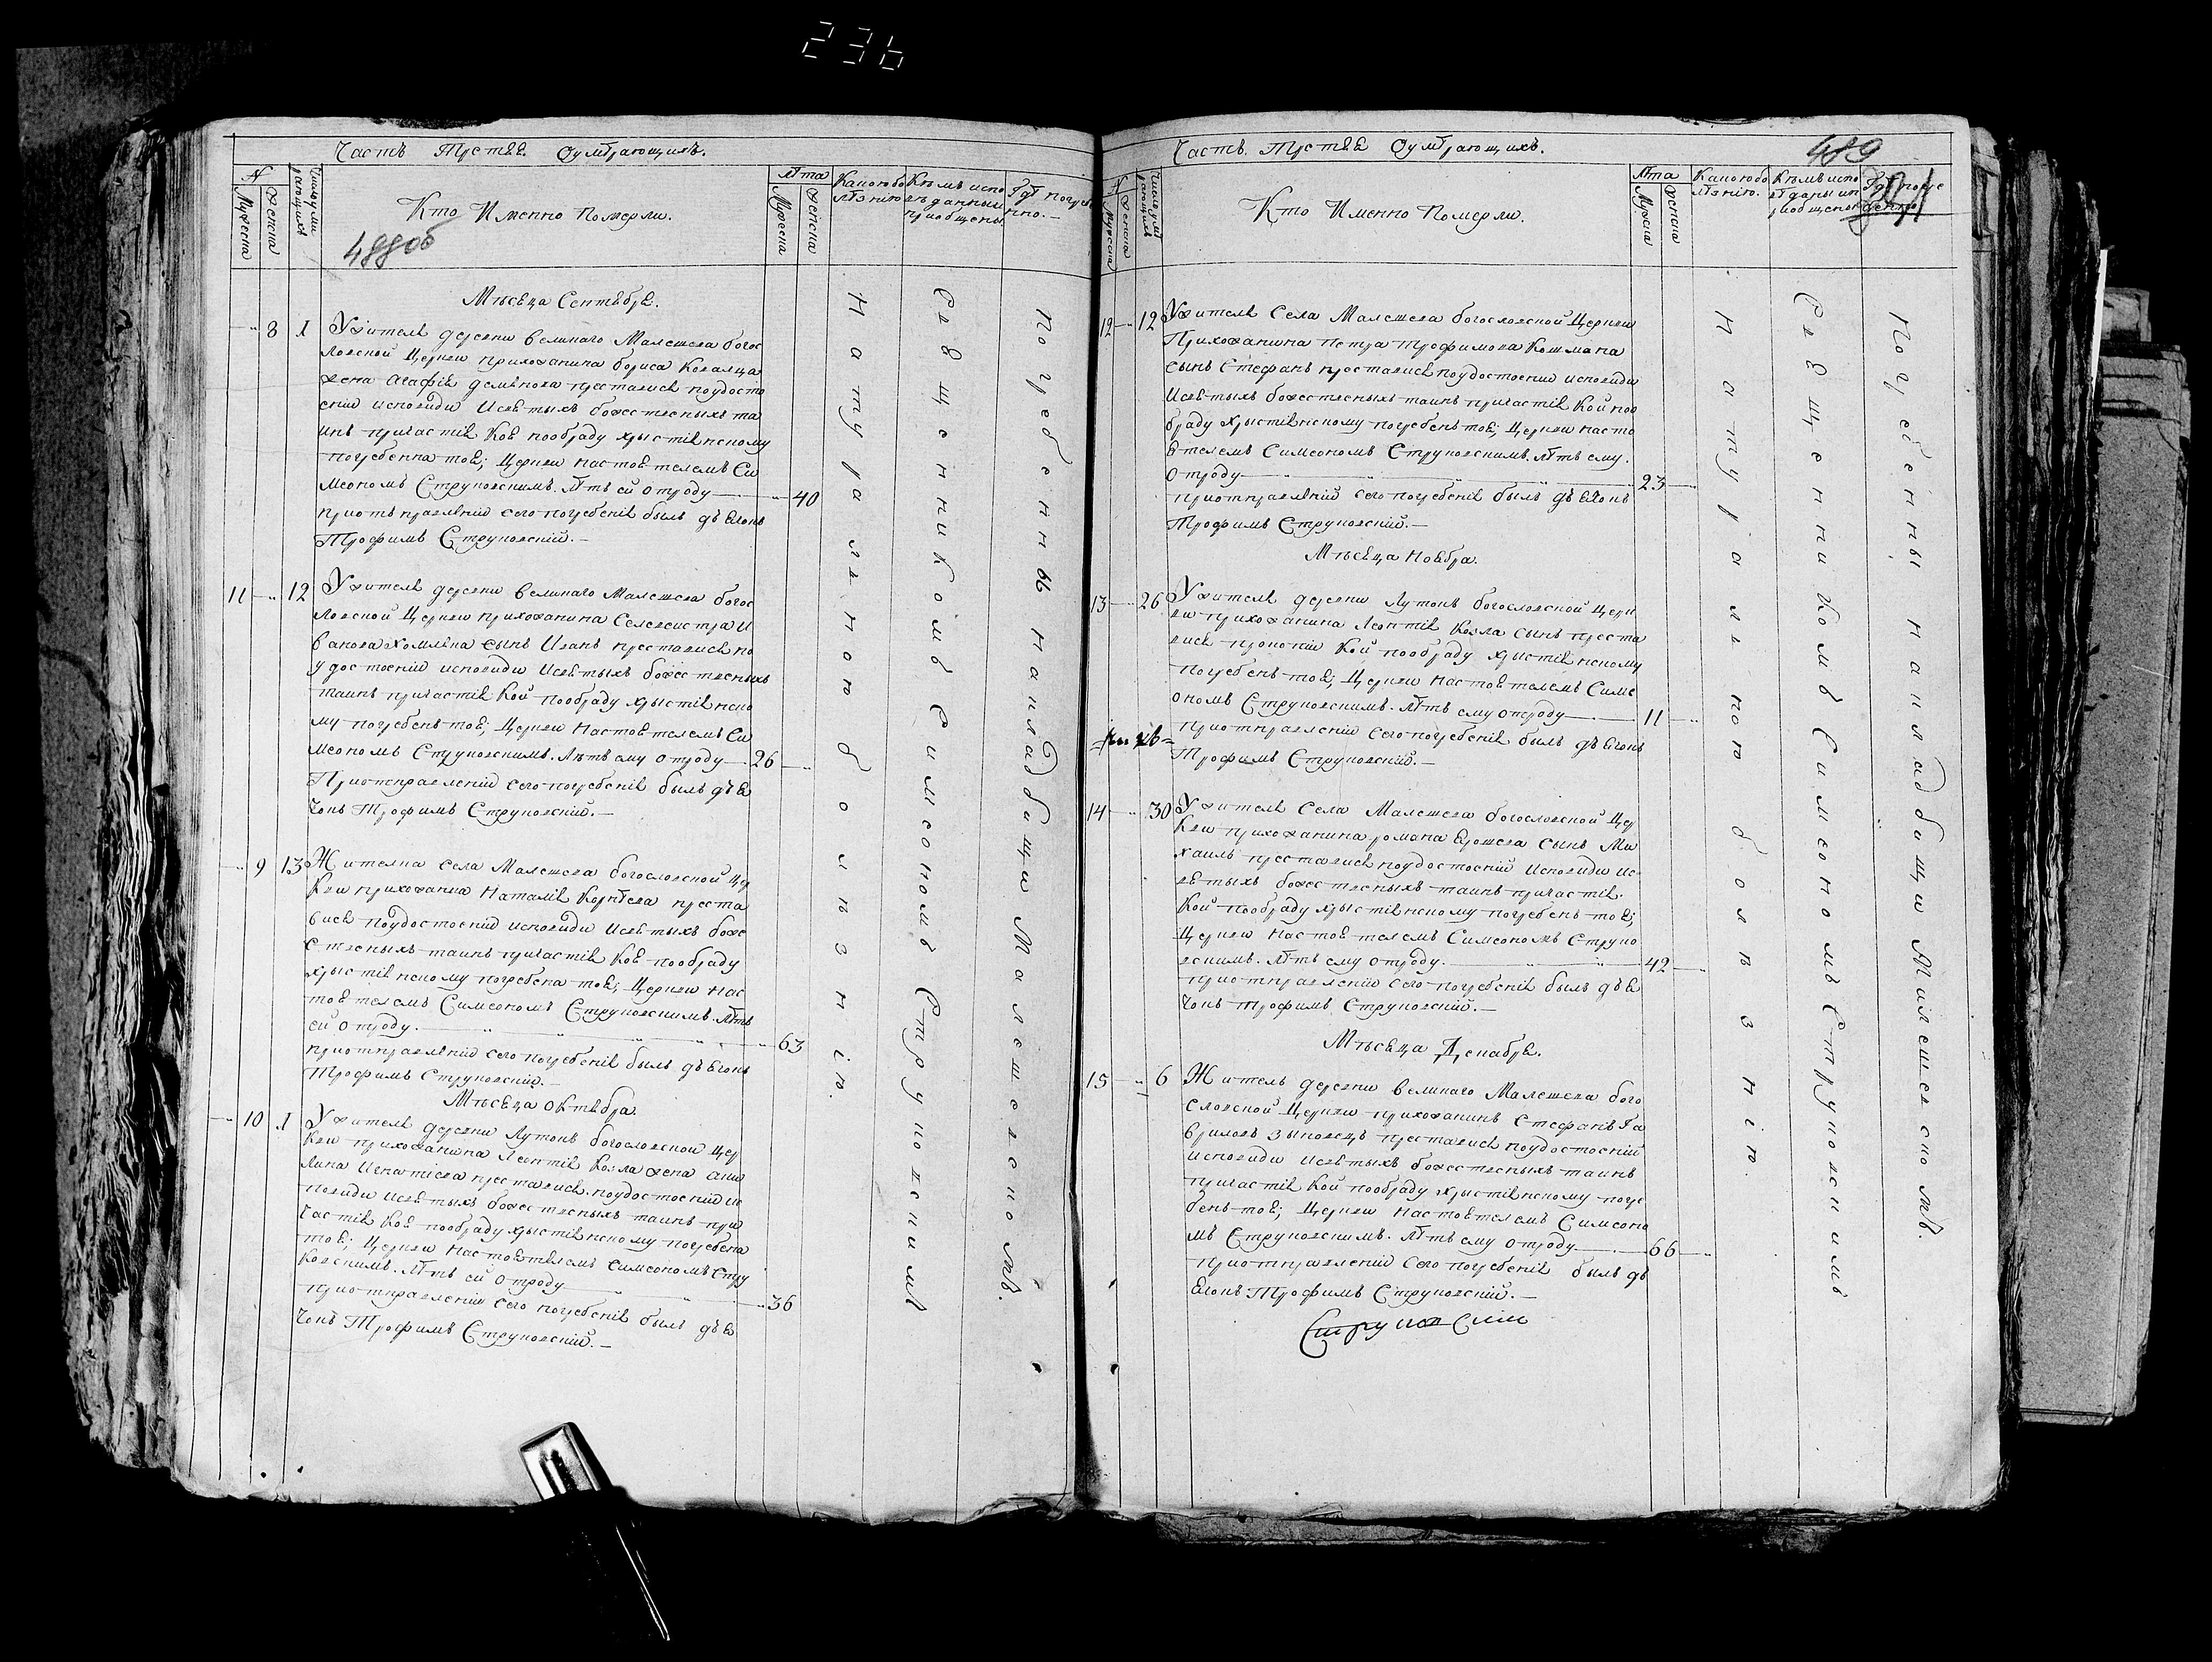 236
Часть Третяя Оумѣрающихъ.
N
Мужеска
Женска
Число умирающихъ
Кто Именно Померли.
488об
Лѣта
Мужеска
Женска
Какою болѣзнію
Кѣмъ исповѣданы и приобщены
Гдѣ погребенно.
Мѣсяца Сентября.
8 1 Ужителя деревни великаго Малешева богос
ловской Церкви прихожанина бориса Ковалца
жена Агафія демянова преставися поудосто
еніи исповѣди исвятыхъ божественныхъ та
инъ причастія Коя пообряду христіянскому
погребенна тоя; Церкви настоятелемъ Си
меономъ Струковскимъ. Лѣтъ ей отроду 40
приотправленіи сего погребенія былъ дьячокъ
Трофимъ Струковскій.
11 12 Ужителя деревни великаго Малешева богос
ловской Церкви прихожанина Селевестра И
ванова Хомяка сынъ Иванъ преставися по
удостоеніи исповѣди исвятыхъ божественныхъ
таинъ причастія Кой пообряду христіянско
му погребенъ тоя; Церкви настоятелемъ Си
меономъ Струковскимъ. Лѣтъ ему отроду 26
Приотправленіи сего погребенія былъ дья
чокъ Трофимъ Струковскій.
9 13 Жителка села Малешева богословской Цер
кви прихожанка Наталія преста
вися поудостоеніи исповѣди исвятыхъ боже
ственныхъ таинъ причастія Коя пообряду
христіянскому погребена тоя; Церкви нас
тоятелемъ Симеономъ Струковскимъ. Лѣтъ
ей отроду. 63
приотправленіи сего погребенія былъ дьячокъ
Трофимъ Струковскій.
Мѣсяца Октября
10 1 Ужителя деревни Лутокъ богословской Цер
кви прихожанина Леонтія Козла жена
Игнатіева преставися поудостоеніи ис
повѣди исвятыхъ божественныхъ таинъ при
частія Коя пообряду христіянскому погребена
тоя; Церкви настоятелемъ Симеономъ Стру
ковскимъ. Лѣтъ ей отроду 36
приотправленіи сего погребенія былъ дья
чокъ Трофимъ Струковскій.
Натуральною болѣзнію.
Священникомъ Симеономъ Струковскимъ
Погребенны накладбищи Малешевскомъ.
Часть Третяя Оумѣрающихъ.
489
N
Мужеска
Женска
Число умирающихъ
Кто Именно Померли.
Лѣта
Мужеска
Женска
Какою болѣзнію.
Кѣмъ исповѣданы и приобщены
Гдѣ погребенно
12 12 Ужителя Села Малешева богословской Церкви
Прихожанина Петра Трофимова Кошмана
сынъ Стефанъ преставися поудостоеніи исповѣди
исвятыхъ божественныхъ таинъ причастія Кой поо
бряду христіянскому погребенъ тоя; Церкви насто
ятелемъ Симеономъ Струковскимъ. Лѣтъ ему.
отроду 23
приотправленіи сего погребенія былъ дьячокъ
Трофимъ Струковскій.
Мѣсяца Ноября.
13 26 Ужителя деревни Лутокъ богословской Церк
ви прихожанина Леонтія Козла сынъ преста
вися Кой пообряду христіянскому
погребенъ тоя; Церкви настоятелемъ Симе
ономъ Струковскимъ. Лѣтъ ему отроду 11
приотправленіи сего погребенія былъ дьячокъ
Трофимъ Струковскій.
14 30 Ужителя Села Малешева богословской Цер
кви прихожанина романа Ярошева сынъ Ми
хаилъ преставися поудостоеніи исповѣди ис
вятыхъ божественныхъ таинъ причастія.
Кой пообряду христіянскому погребенъ тоя;
Церкви настоятелемъ Симеономъ Струко
вскимъ. Лѣтъ ему отроду. 42
приотправленіи сего погребенія былъ дья
чокъ Трофимъ Струковскій.
Мѣсяца Декабря.
15 6 Житель деревни великаго Малешева бого
словской Церкви прихожанинъ Стефанъ Га
вриловъ преставися поудостоеніи
исповѣди исвятыхъ божественныхъ таинъ
причастія Кой пообряду христіянскому погре
бенъ тоя; Церкви настоятелемъ Симеоно
мъ Струковскимъ. Лѣтъ ему отроду 66
приотправленіи сего погребенія былъ дь
ячокъ Трофимъ Струковскій.
Натуральною болѣзнію.
Священникомъ Симеономъ Струковскимъ
Погребенны накладбищи Малешевскомъ.